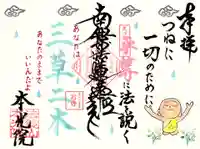 奉拝
つねに
一切のために
法を説く
南無妙法蓮華経
あなたは
三草二木
あなたのままで
いいんだよ
本光院